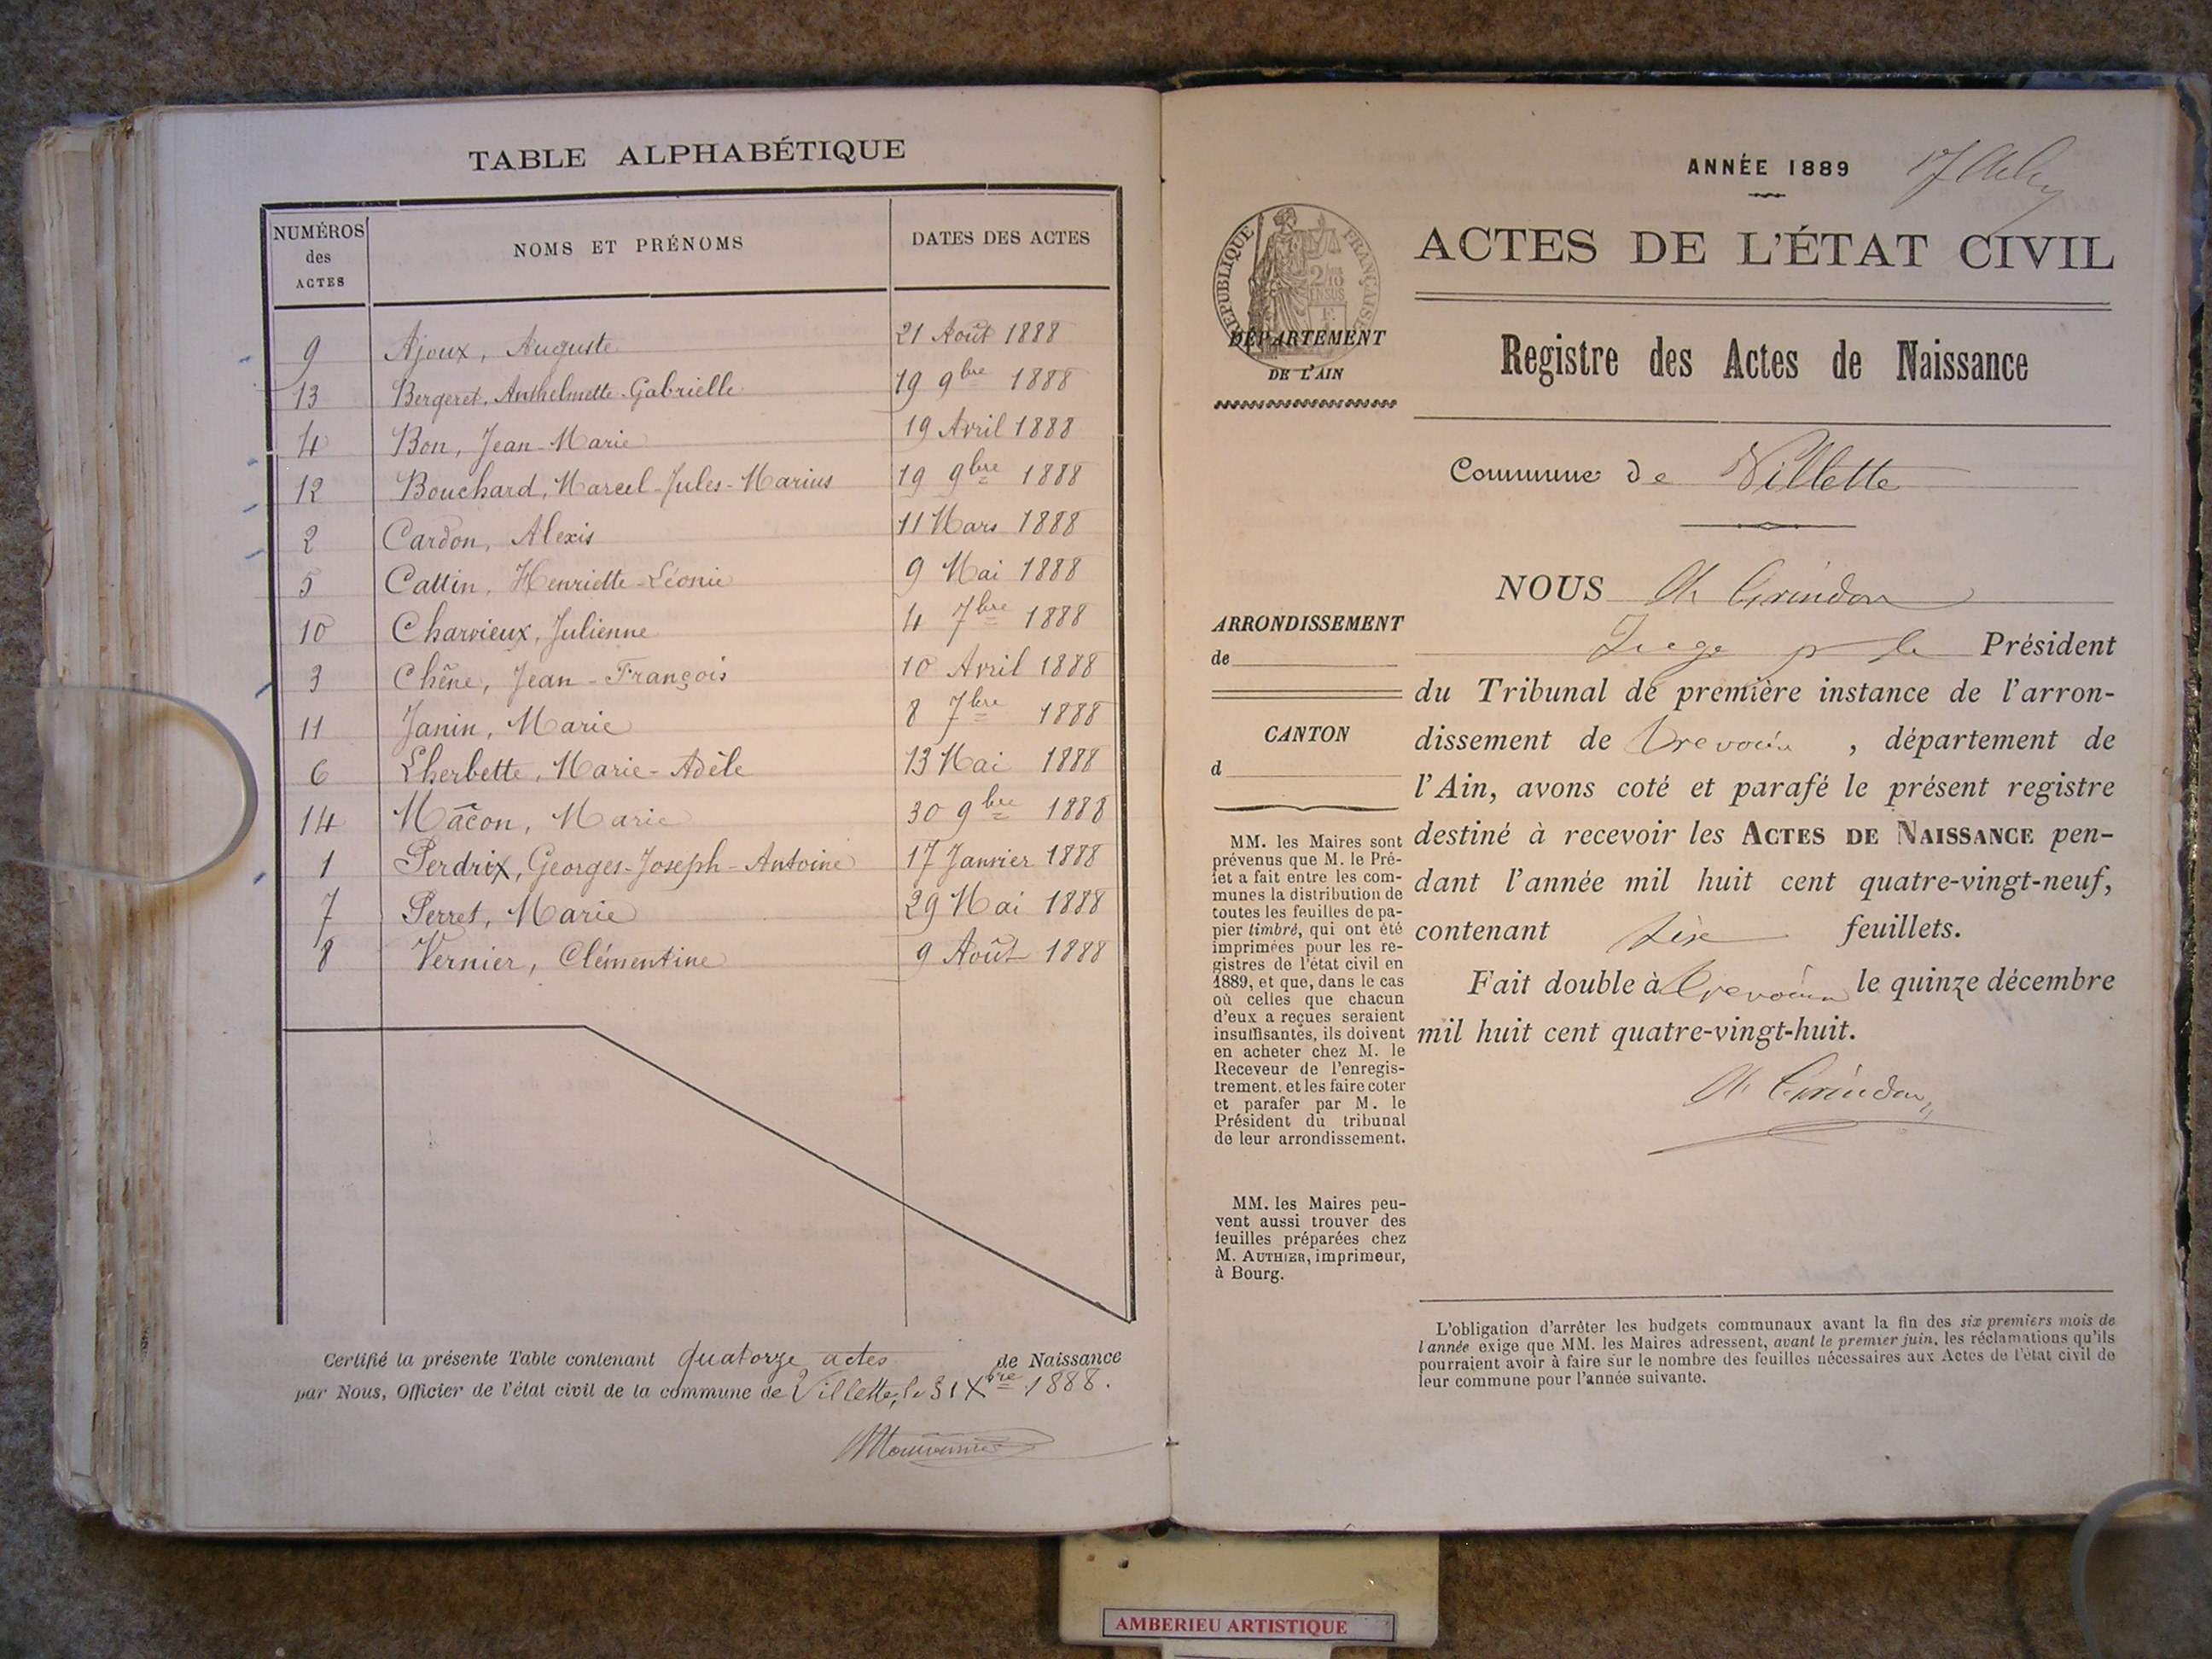 TABLE ALPHABÉTIQUE
NUMÉROS des ACTES
NOMS ET PRÉNOMS
DATES DES ACTES
9 Ajoux, Auguste 21 Août 1888
13 Bergeret, Anthelmette-Gabrielle 19 9bre 1888
4 Bon, Jean-Marie 19 Avril 1888
12 Bouchard, Marcel-Jules-Marius 19 9bre 1888
2 Cardon, Alexis 11 Mars 1888
5 Cattin, Henriette-Léonie 9 Mai 1888
10 Charvieux, Julienne 4 7bre 1888
3 Chêne, Jean-François 10 Avril 1888
11 Janin, Marie 8 7bre 1888
6 Lherbette, Marie-Adèle 13 Mai 1888
14 Mâcon, Marie 30 9bre 1888
1 Perdrix, Georges-Joseph-Antoine 17 Janvier 1888
7 Perret, Marie 29 Mai 1888
8 Vernier, Clémentine 9 Août 1888
Certifié la présente Table contenant quatorze actes de Naissance
par Nous, Officier de l'état civil de la commune de Villette, le 31 Xbre 1888.
ANNÉE 1889
ACTES DE L'ÉTAT CIVIL
RÉPUBLIQUE FRANÇAISE
DÉPARTEMENT
DE L'AIN
Registre des Actes de Naissance
Commune de Villette
ARRONDISSEMENT
de
CANTON
d
MM. les Maires sont
prévenus que M. le Pré-
fet a fait entre les com-
munes la distribution de
toutes les feuilles de pa-
pier timbré, qui ont été
imprimées pour les re-
gistres de l'état civil en
1889, et que, dans le cas
où celles que chacun
d'eux a reçues seraient
insuffisantes, ils doivent
en acheter chez M. le
Receveur de l'enregis-
trement, et les faire coter
et parafer par M. le
Président du tribunal
de leur arrondissement.
MM. les Maires peu-
vent aussi trouver des
feuilles préparées chez
M. AUTHIER, imprimeur,
à Bourg.
NOUS Ch Grindon
Juge pr le Président
du Tribunal de première instance de l'arron-
dissement de Trevoux, département de
l'Ain, avons coté et parafé le présent registre
destiné à recevoir les ACTES DE NAISSANCE pen-
dant l'année mil huit cent quatre-vingt-neuf,
contenant feuillets.
Fait double à Trevoux le quinze décembre
mil huit cent quatre-vingt-huit.
Ch Grindon
L'obligation d'arrêter les budgets communaux avant la fin des six premiers mois de
l'année exige que MM. les Maires adressent, avant le premier juin, les réclamations qu'ils
pourraient avoir à faire sur le nombre des feuilles nécessaires aux Actes de l'état civil de
leur commune pour l'année suivante.
AMBERIEU ARTISTIQUE